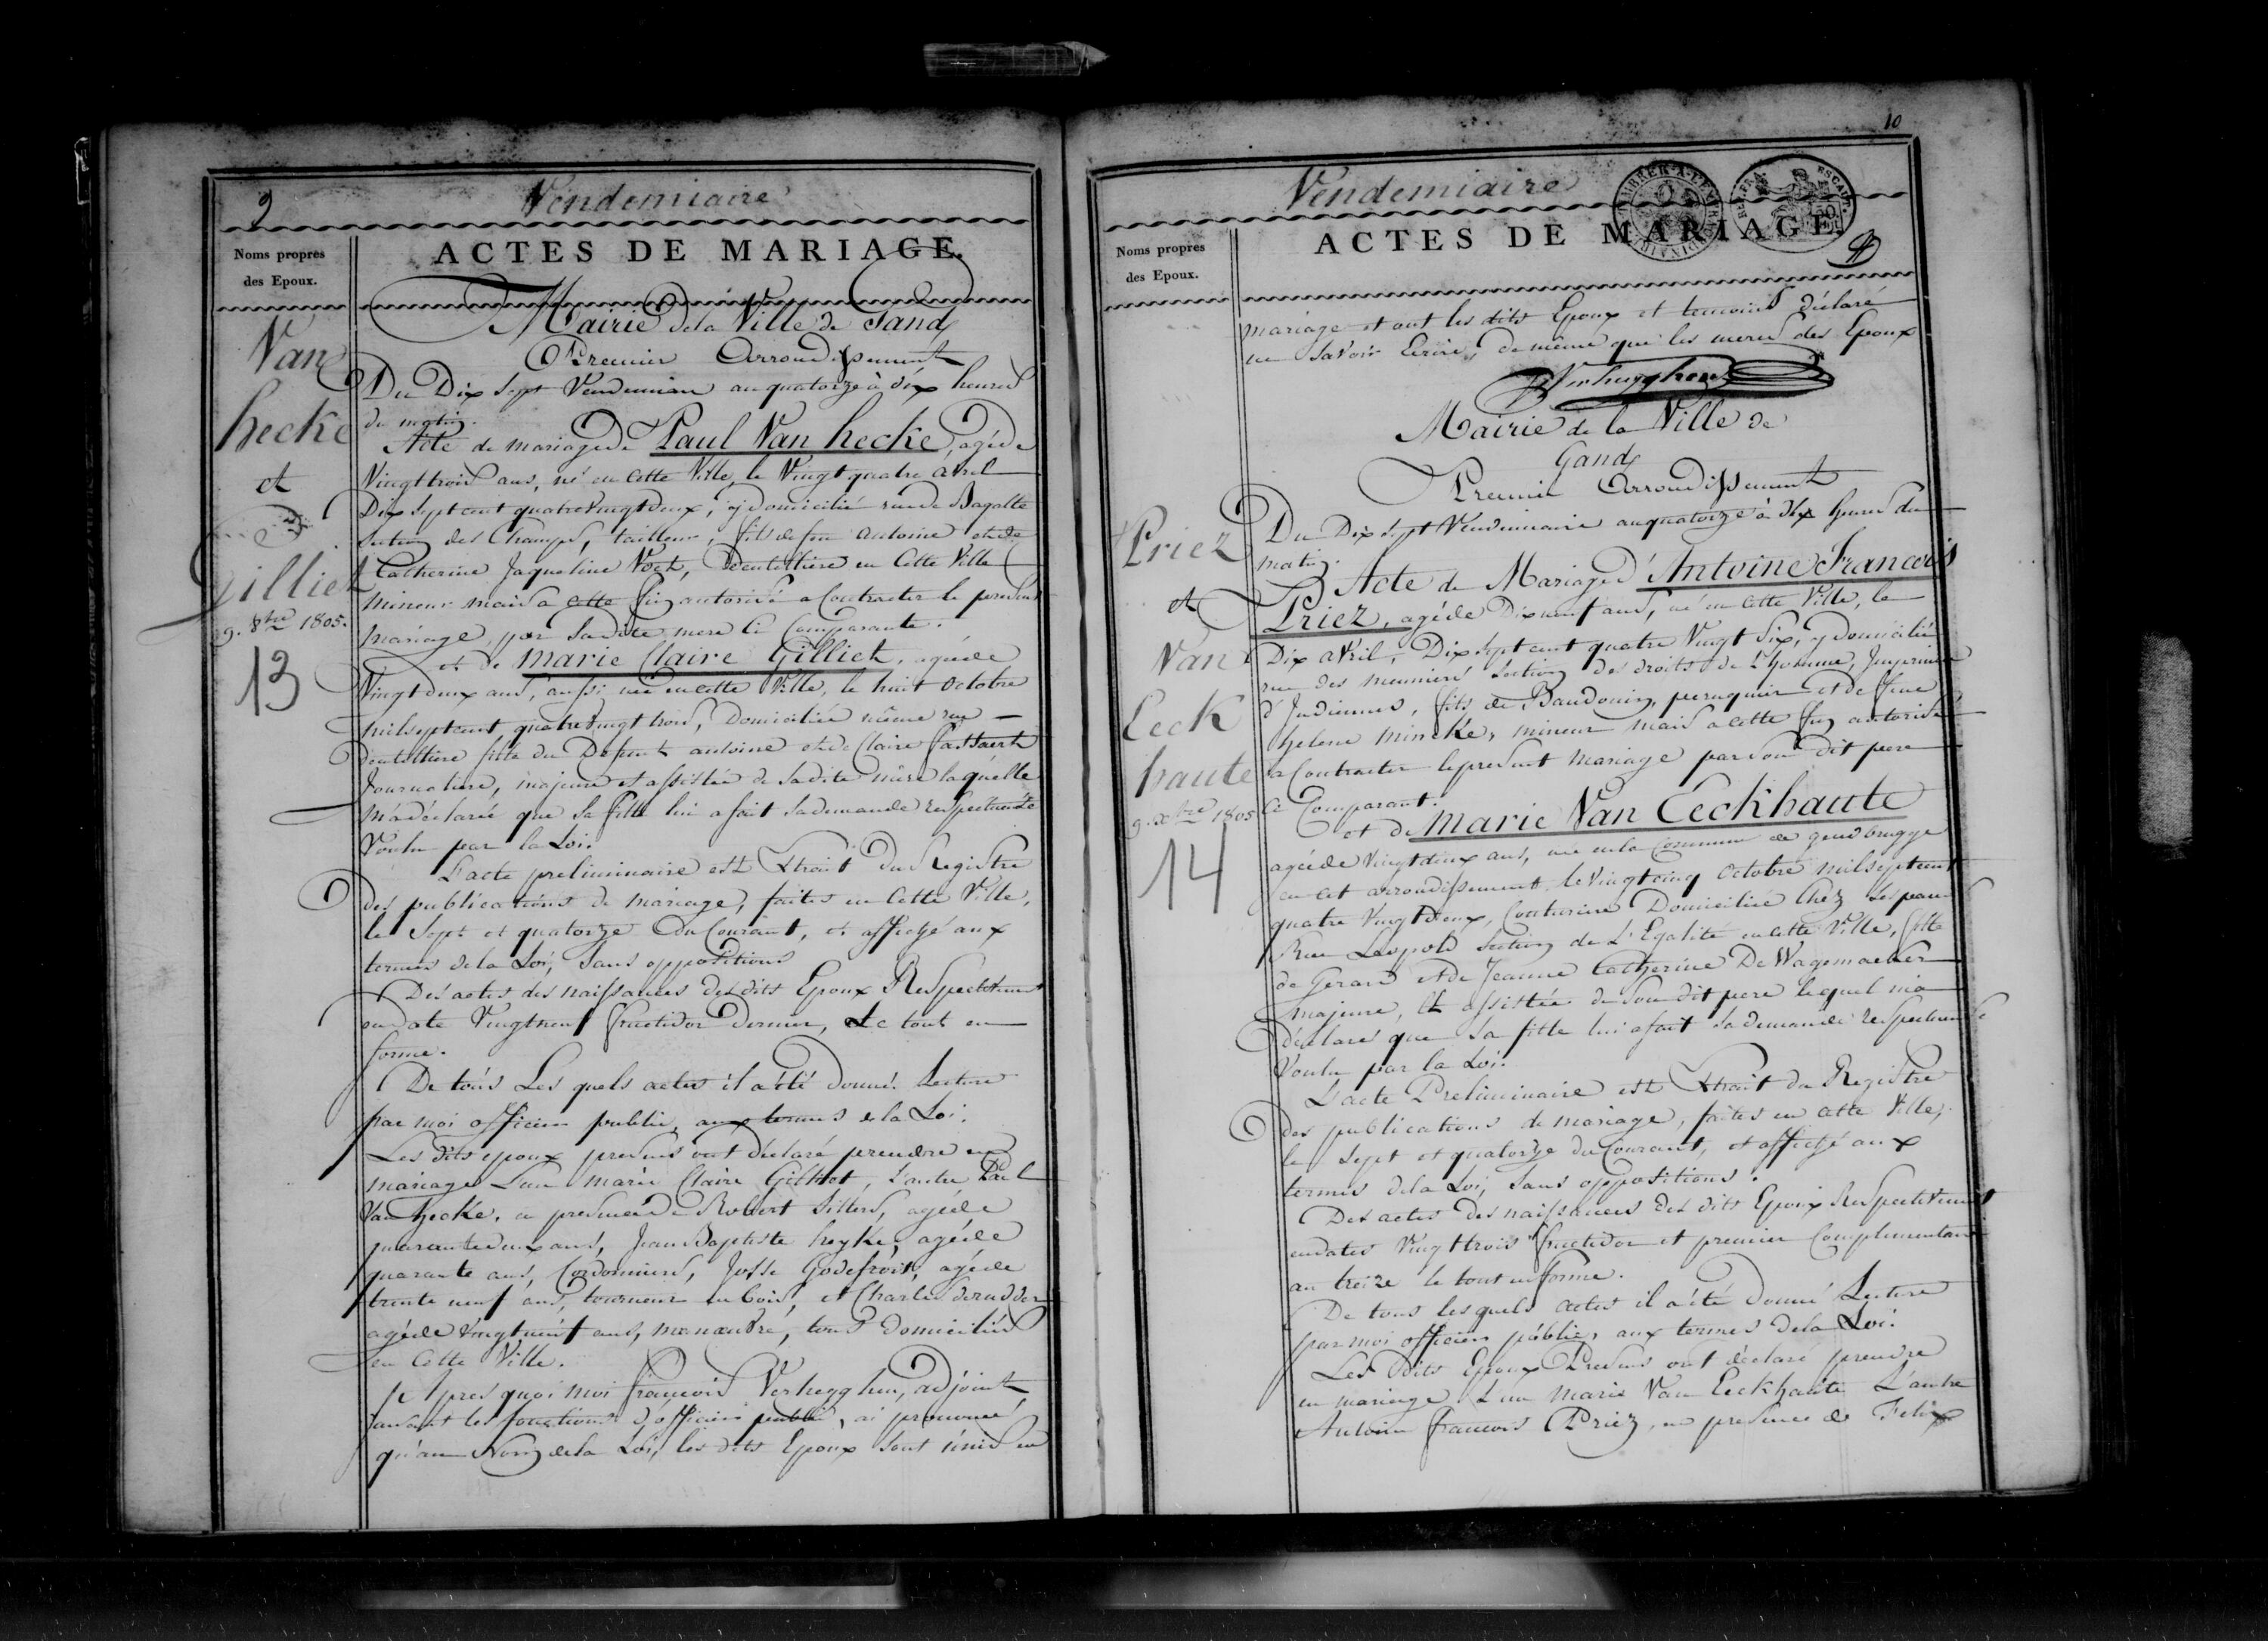 9
Vendemiaire
Noms propres
des Epoux.
ACTES DE MARIAGE.
Van
hecke
et
Gilliet
9. 8bre 1805.
13
Mairie de la Ville de Gand
Premier Arrondissement
Du Dix Sept Vendemiaire an quatorze à dix heures
du matin.
Acte de mariage de Paul Van hecke, agé de
Vingt trois ans, né en cette Ville, le Vingt quatre avril
Dix sept cent quatre vingt deux, y domicilié rue de Bagatte
Section des Champs, tailleur, fils de feu Antoine et de
Catherine Jaqueline Voet, Dentelliere en Cette Ville
Mineur mais a cette fin autorisé a Contracter le present
mariage, par sa dite mere Ci Comparante.
et de Marie Claire Gilliet, agée de
Vingt deux ans, aussi née en cette Ville, le huit Octobre
mil sept cent quatre vingt trois, Domiciliée même rue
dentelliere fille du Defunt antoine et de Claire
Journaliere, majeure et assistée de sa dite mère laquelle
m'a déclaré que sa fille lui a fait sa demande respectueuse
Voulu par la Loi.
L'acte preliminaire est Extrait du Registre
des publications de mariage, faites en Cette Ville,
le Sept et quatorze du Courant, et affiché aux
termes de la Loi, sans oppositions
Des actes des naissances des dits Epoux Respectivement
en date Vingt neuf fructidor dernier, Le tout en
forme.
De tous Les quels actes il a été Donné Lecture
par moi officier public, aux termes de la Loi.
Les dits epoux presens ont déclaré prendre en
mariage L'un Marie Claire Gilliet, L'autre Paul
Van hecke, en presence de Robert Sillers, agé de
quarante deux ans, Jean Baptiste heyke, agé de
quarante ans, Cordonniers, Josse Godefroit, agé de
trente neuf ans, tourneur en bois, et Charles
agé de vingt neuf ans, manoeuvre, tous domiciliés
en Cette Ville.
Apres quoi moi françois Verhegghen, adjoint
faisant les fonctions d'officier public, ai prononcé
qu'au Nom de la Loi, les dits Epoux sont unis en
10
Vendemiaire
TIMBRER A L'EXTRAORDINAIRE
ESCAUT
Noms propres
des Epoux.
ACTES DE MARIAGE.
mariage et ont les dits Epoux et temoins déclaré
ne savoir Ecrire, de même que les meres des Epoux
Verhegghen
Mairie de la Ville de
Gand
Premier Arrondissement
Priez
et
Van
Eeck
haute
9. xbre 1805
14
Du Dix sept Vendemiaire an quatorze à dix heures du
matin.
Acte de Mariage d'Antoine Francois
Priez, agé de Dix neuf ans, né en cette Ville, le
Dix avril, Dix sept cent quatre Vingt Six, y domicilié
rue des meuniers Section des droits de L'homme, Imprimeur
d'Indiennes, fils de Baudouin, peruquier et de feue
helene Mincké, mineur mais a cette fin autorisé
a Contracter le present Mariage par son dit pere
Ci Comparant.
et de Marie Van Eeckhaute
agée de Vingt deux ans, née en la Commune de gendbrugge
en cet arrondissement le vingt cinq Octobre mil sept cent
quatre Vingt Deux, Couturiere Domiciliée Chez Ses parens
Rue Leopold Section de L'Egalité en cette Ville, fille
de Gerard et de Jeanne Catherine De Wagemaeker
majeure, et assistée de son dit pere lequel m'a
déclaré que sa fille lui a fait sa demande respectueuse
Voulu par la Loi.
L'acte Preliminaire est Extrait du Registre
des publications de mariage, faites en cette Ville,
le sept et quatorze du Courant, et affiché aux
termes de la Loi, sans oppositions.
Des actes des naissances des dits Epoux Respectivement
en dates Vingt trois fructidor et premier Complementaire
an treize le tout en forme.
De tous les quels actes il a été Donné Lecture
par moi officier public, aux termes de la Loi.
Les dits Epoux Presens ont déclaré prendre
en mariage L'un Marie Van Eeckhaute L'autre
Antoine francois Priez, en presence de Felix